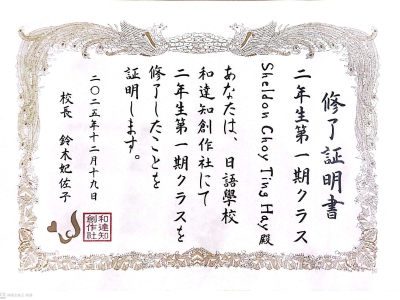 修了証明書
二年生第一期クラス
Sheldon Choy Ting Hay 殿
あなたは、日語學校
和達知創作社にて
二年生第一期クラスを
修了したことを
証明します。
二〇二五年十二月十九日
校長 鈴木妃佐子
和達知
創作社